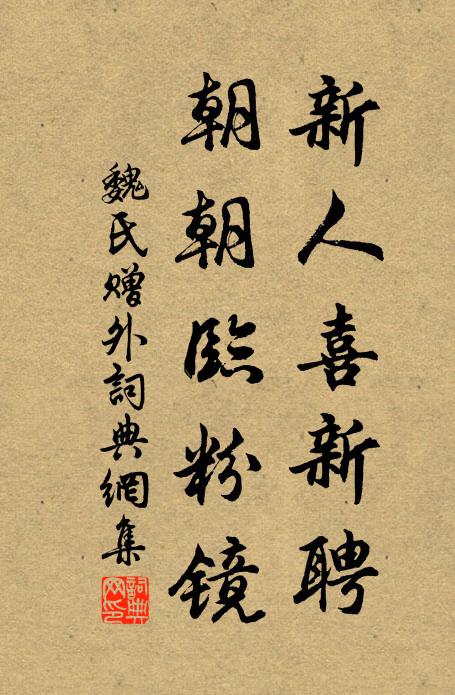 新人喜新聘
朝朝臨粉镜
魏氏赠外詞典網集
詞典网印